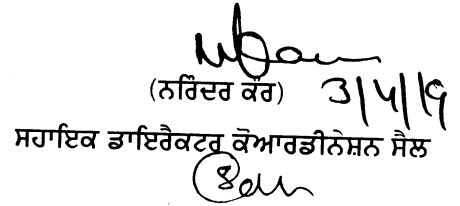 (ਨਰਿੰਦਰ ਕੌਰ) 3/4/19
ਸਹਾਇਕ ਡਾਇਰੈਕਟਰ ਕੋਆਰਡੀਨੇਸ਼ਨ ਸੈਲ